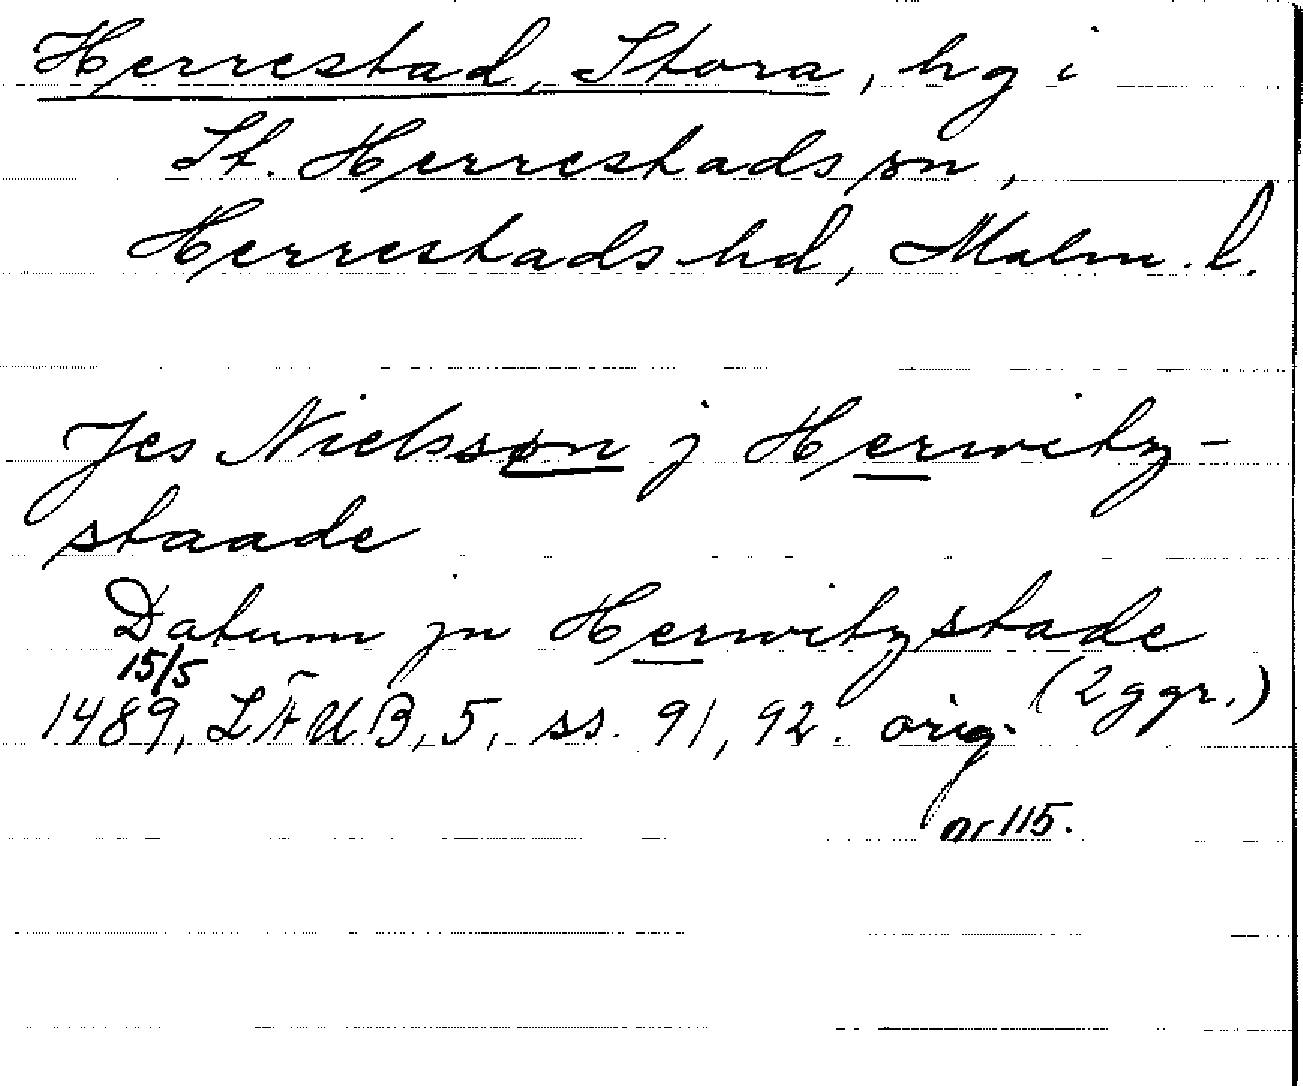 Herrestad, Stora, hg i
St. Herrestads sn,
Herrestads hd, Malm. l.
Jes Nielssøn j Herwitz-
staade
Datum jn Herwitzstade
15/5 (2 ggr.)
1489, LÄUB, 5, ss. 91, 92. orig.
nr 115.